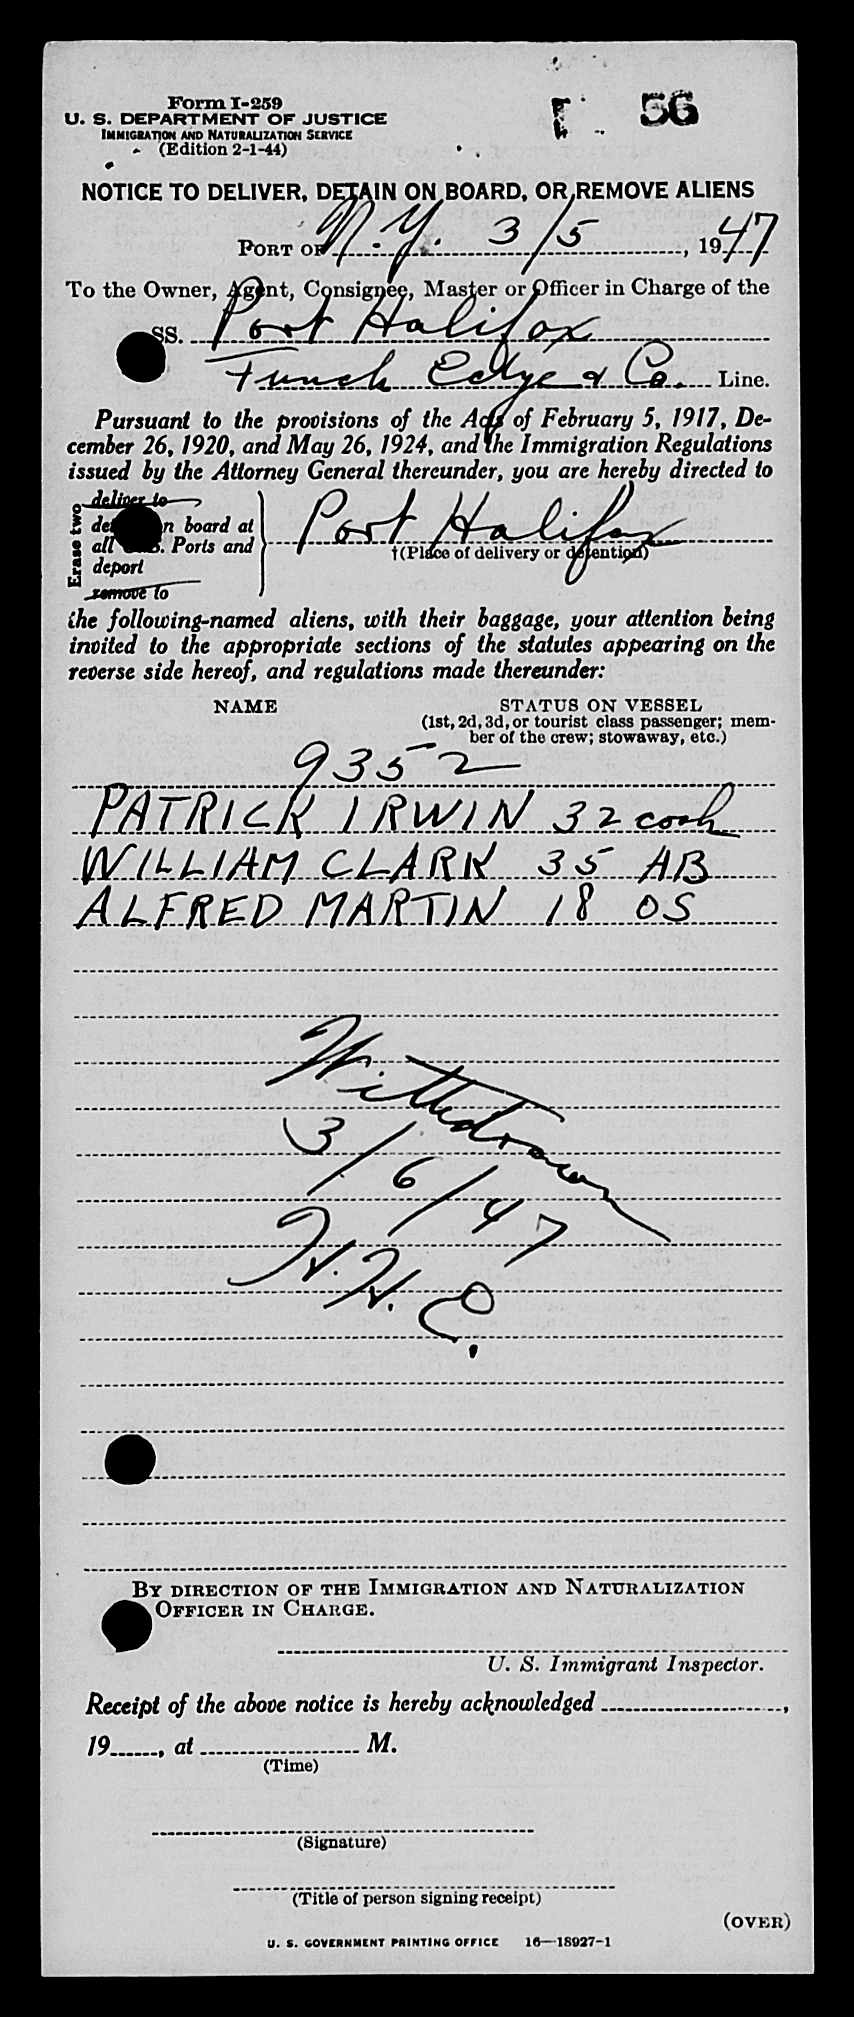 56
Form I-259
U. S. DEPARTMENT OF JUSTICE
IMMIGRATION AND NATURALIZATION SERVICE
(Edition 2-1-44)
NOTICE TO DELIVER, DETAIN ON BOARD, OR REMOVE ALIENS
PORT OF N.Y. 3/5, 1947
To the Owner, Agent, Consignee, Master or Officer in Charge of the
SS. Port Halifax
Funch Edye & Co. Line.
Pursuant to the provisions of the Acts of February 5, 1917, De-
cember 26, 1920, and May 26, 1924, and the Immigration Regulations
issued by the Attorney General thereunder, you are hereby directed to
Erase two
deliver to
n board at
all U.S. Ports and
deport
remove to
Port Halifax
†(Place of delivery or detention)
the following-named aliens, with their baggage, your attention being
invited to the appropriate sections of the statutes appearing on the
reverse side hereof, and regulations made thereunder:
NAME STATUS ON VESSEL
(1st, 2d, 3d, or tourist class passenger; mem-
ber of the crew; stowaway, etc.)
9352
PATRICK IRWIN 32 cook
WILLIAM CLARK 35 AB
ALFRED MARTIN 18 OS
Withdrawn
3/6/47
H.H.E.
BY DIRECTION OF THE IMMIGRATION AND NATURALIZATION
OFFICER IN CHARGE.
U. S. Immigrant Inspector.
Receipt of the above notice is hereby acknowledged ,
19 , at M.
(Time)
(Signature)
(Title of person signing receipt)
(OVER)
U. S. GOVERNMENT PRINTING OFFICE 16—18927-1